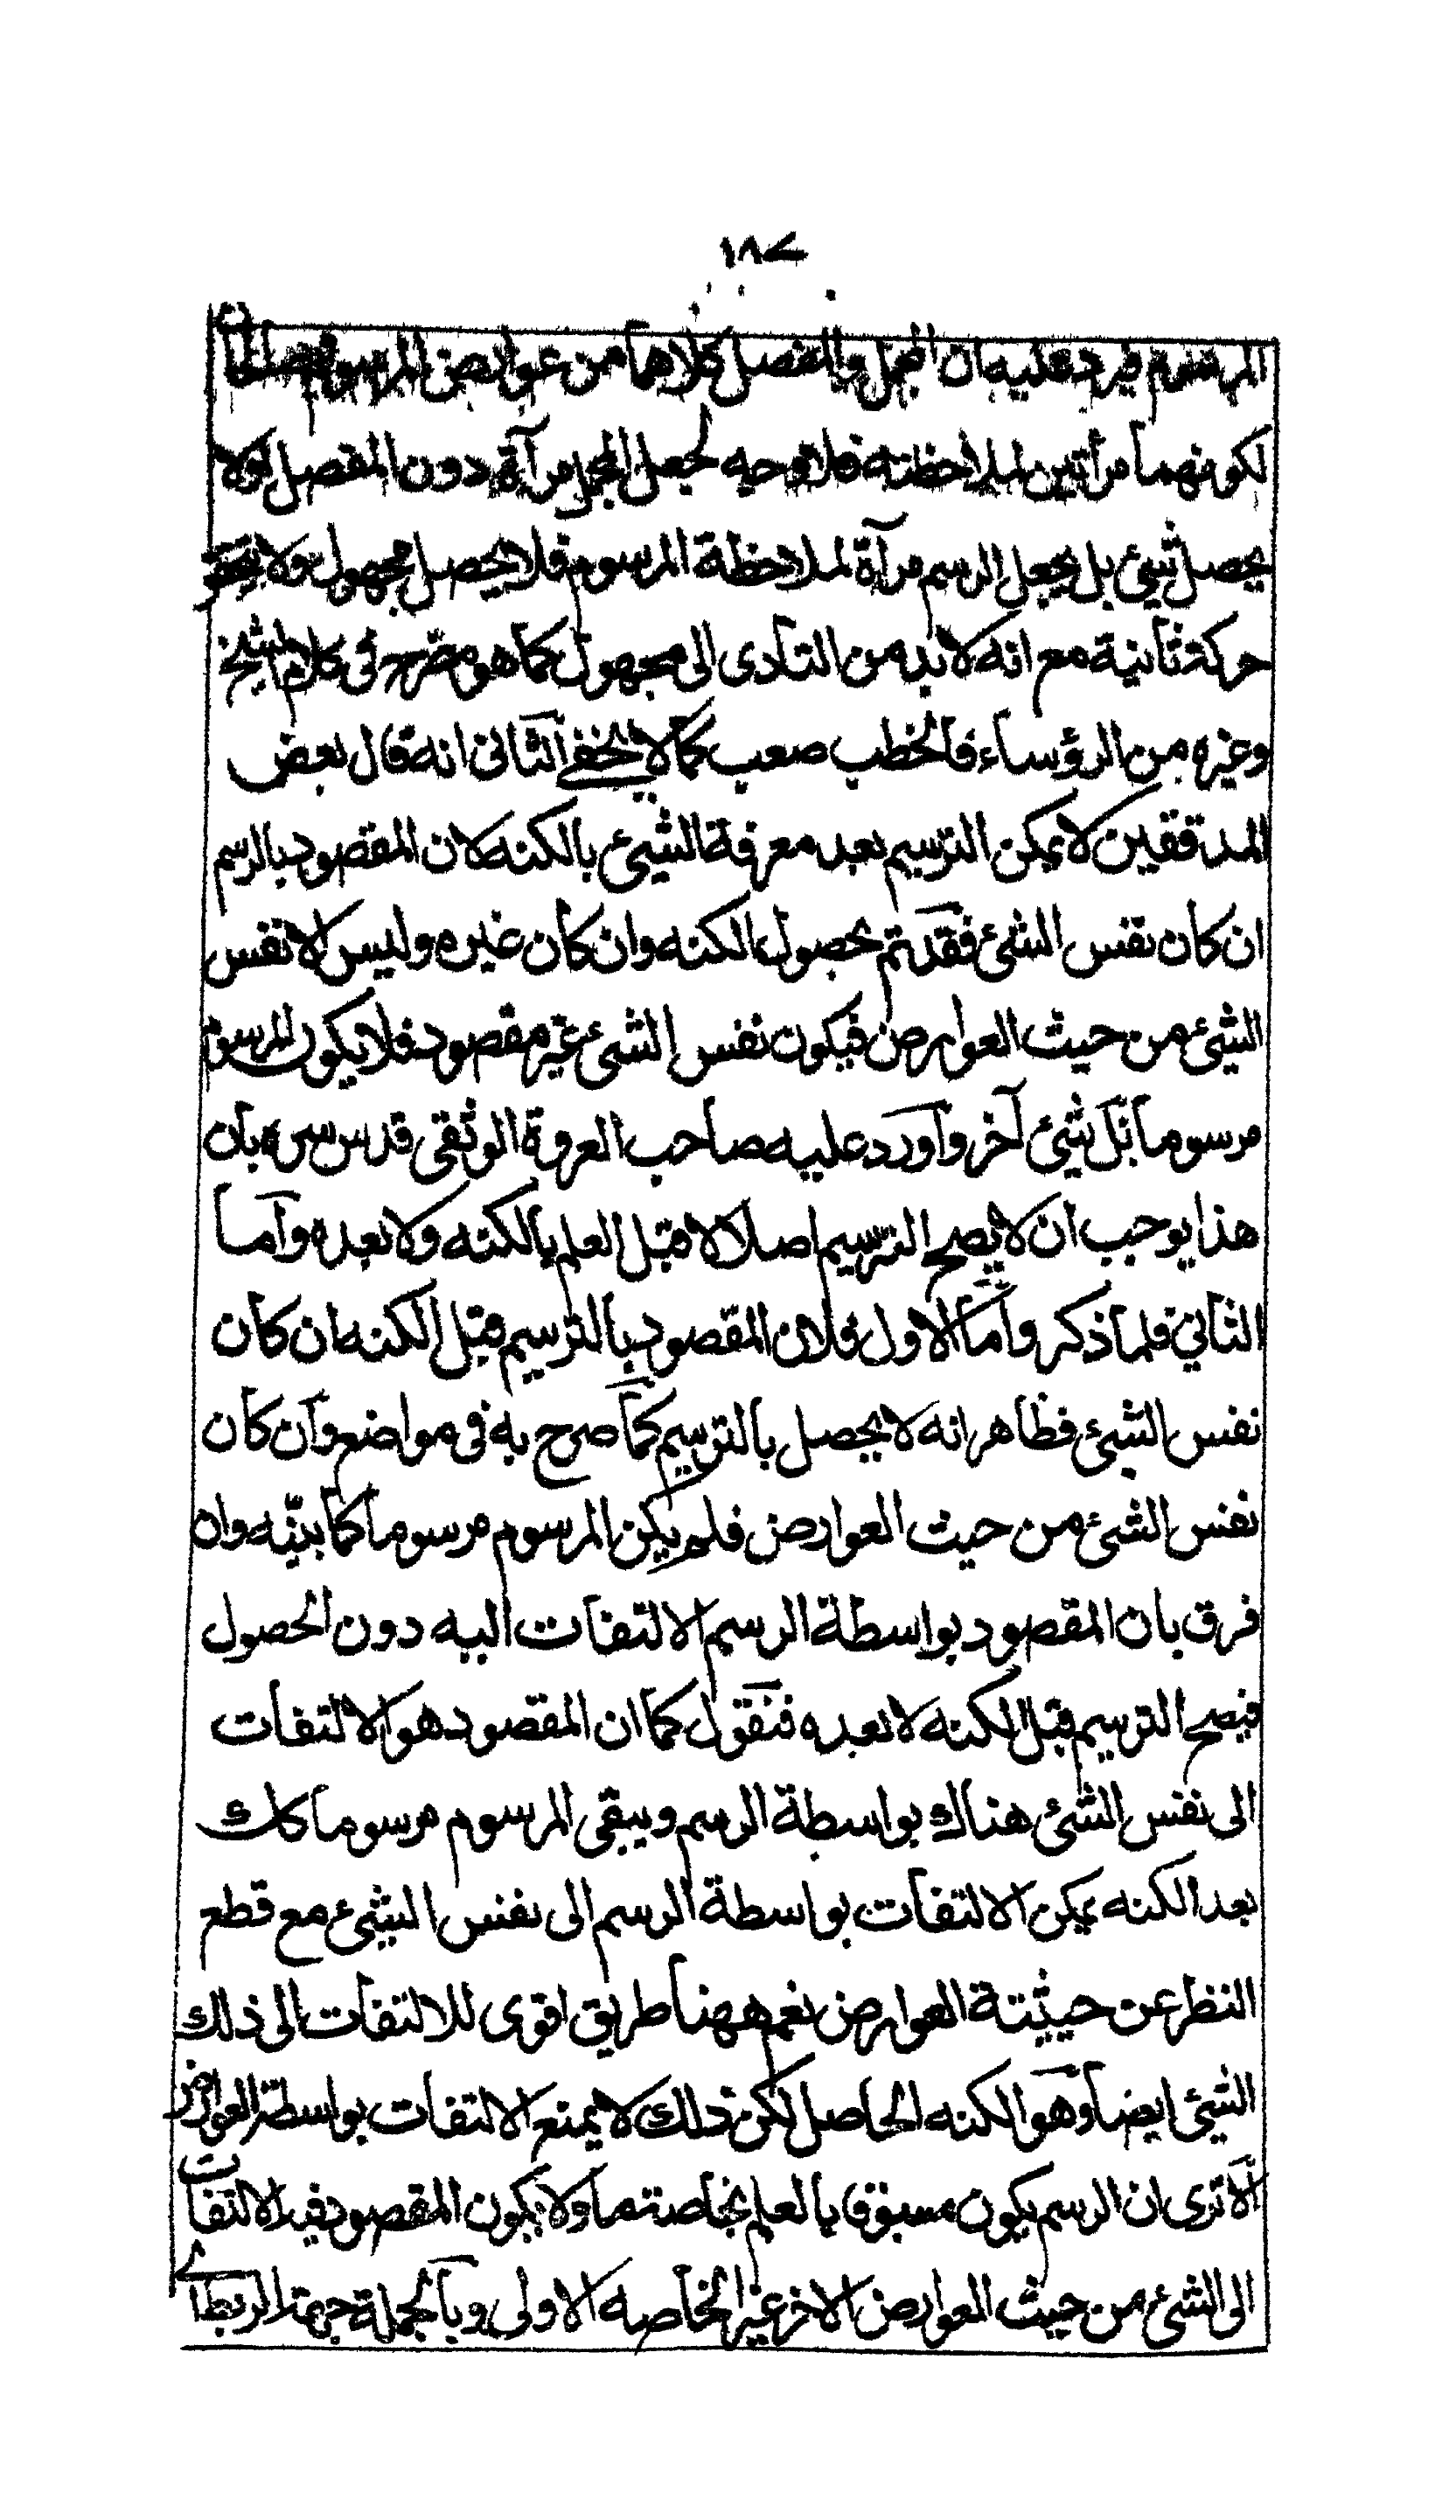 ١٨٧
المرسوم فيرد عليه ان المجمل والمفصل كلاهما من عوارض المرسوم
لكونهما مرأتين لملاحظته فلا توجيه لجعل المجمل مرآة دون المفصل ولا
يحصل شيئ بل يجعل الرسم مرآة لملاحظة المرسوم فلا يحصل مجهول ولا
حركة ثانية مع انه لا بد من التأدى الى مجهول كما هو مصرح فى كلام الشيخ
وغيره من الرؤساء فالخطب صعب كما لا يخفى الثانى انه قال بعض
المدققين لا يمكن الترسيم بعد معرفة الشيئ بالكنه لان المقصود بالرسم
ان كان نفس الشئ فقد تم بحصول الكنه وان كان غيره وليس الا نفس
الشئ من حيث العوارض فيكون نفس الشئ غير مقصود فلا يكون المرسوم
مرسوما بل شيئ آخر واورد عليه صاحب العروة الوثقى قدس سره بان
هذا يوجب ان لا يصح الترسيم اصلا لا قبل العلم بالكنه ولا بعده واما
الثانى فلما ذكر واما الاول فلان المقصود بالترسيم قبل الكنه ان كان
نفس الشيئ فظاهر انه لا يحصل بالترسيم كما صرح به فى مواضع وان كان
نفس الشئ من حيث العوارض فلم يكن المرسوم مرسوما كما بينه وان
فرق بان المقصود بواسطة الرسم الالتفات اليه دون الحصول
فيصح الترسيم قبل الكنه لا بعده فنقول كما ان المقصود هو الالتفات
الى نفس الشئ هناك بواسطة الرسم ويبقى المرسوم مرسوما كذلك
بعد الكنه يمكن الالتفات بواسطة الرسم الى نفس الشيئ مع قطع
النظر عن حيثية العوارض نعم ههنا طريق اقوى للالتفات الى ذلك
الشيئ ايضا وهو الكنه الحاصل لكن ذلك لا يمنع الالتفات بواسطة العوارض
الا ترى ان الرسم يكون مسبوقا بالعلم بخاصته ما ولا يكون المقصود فيه الالتفات
الى الشئ من حيث العوارض الاخر غير الخاصه الاولى وبالجملة جهة الربط